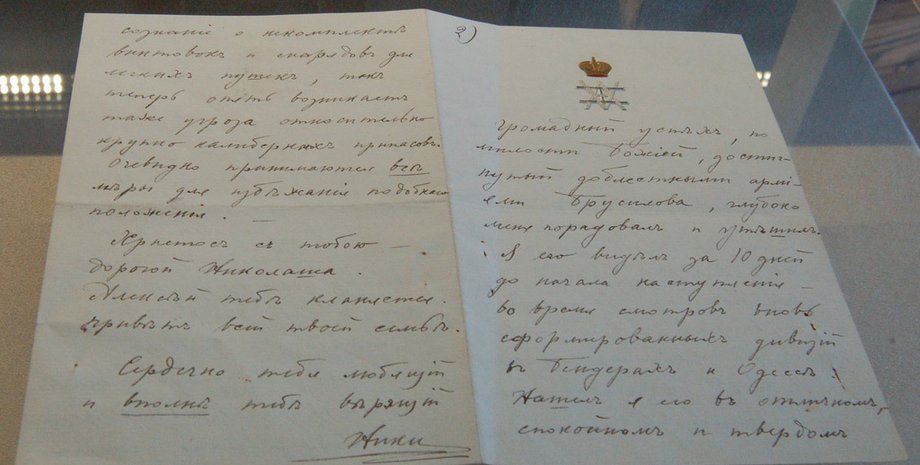 сознаніе о некомплектѣ
винтовокъ и снарядовъ для
легкихъ пушекъ, такъ
теперь опять возникаетъ
таже угроза относительно
крупно калиберныхъ припасовъ.
Очевидно принимаются всѣ
мѣры для избѣжанія подобнаго
положенія.
Христосъ съ тобою —
дорогой Николаша.
Алексѣй тебѣ кланяется.
Привѣтъ всей твоей семьѣ.
Сердечно тебя любящій
и вполнѣ тебѣ вѣрящій
Ники
2)
Громадный успѣхъ, по
милости Божіей, достиг-
нутый доблестными армі-
ями Брусилова, глубоко
меня порадовалъ и утѣшилъ.
Я его видѣлъ за 10 дней
до начала наступленія —
во время смотровъ вновь
сформированныхъ дивизій
въ Бендерахъ и Одессѣ.
Нашелъ я его въ отличномъ,
спокойномъ и твердомъ